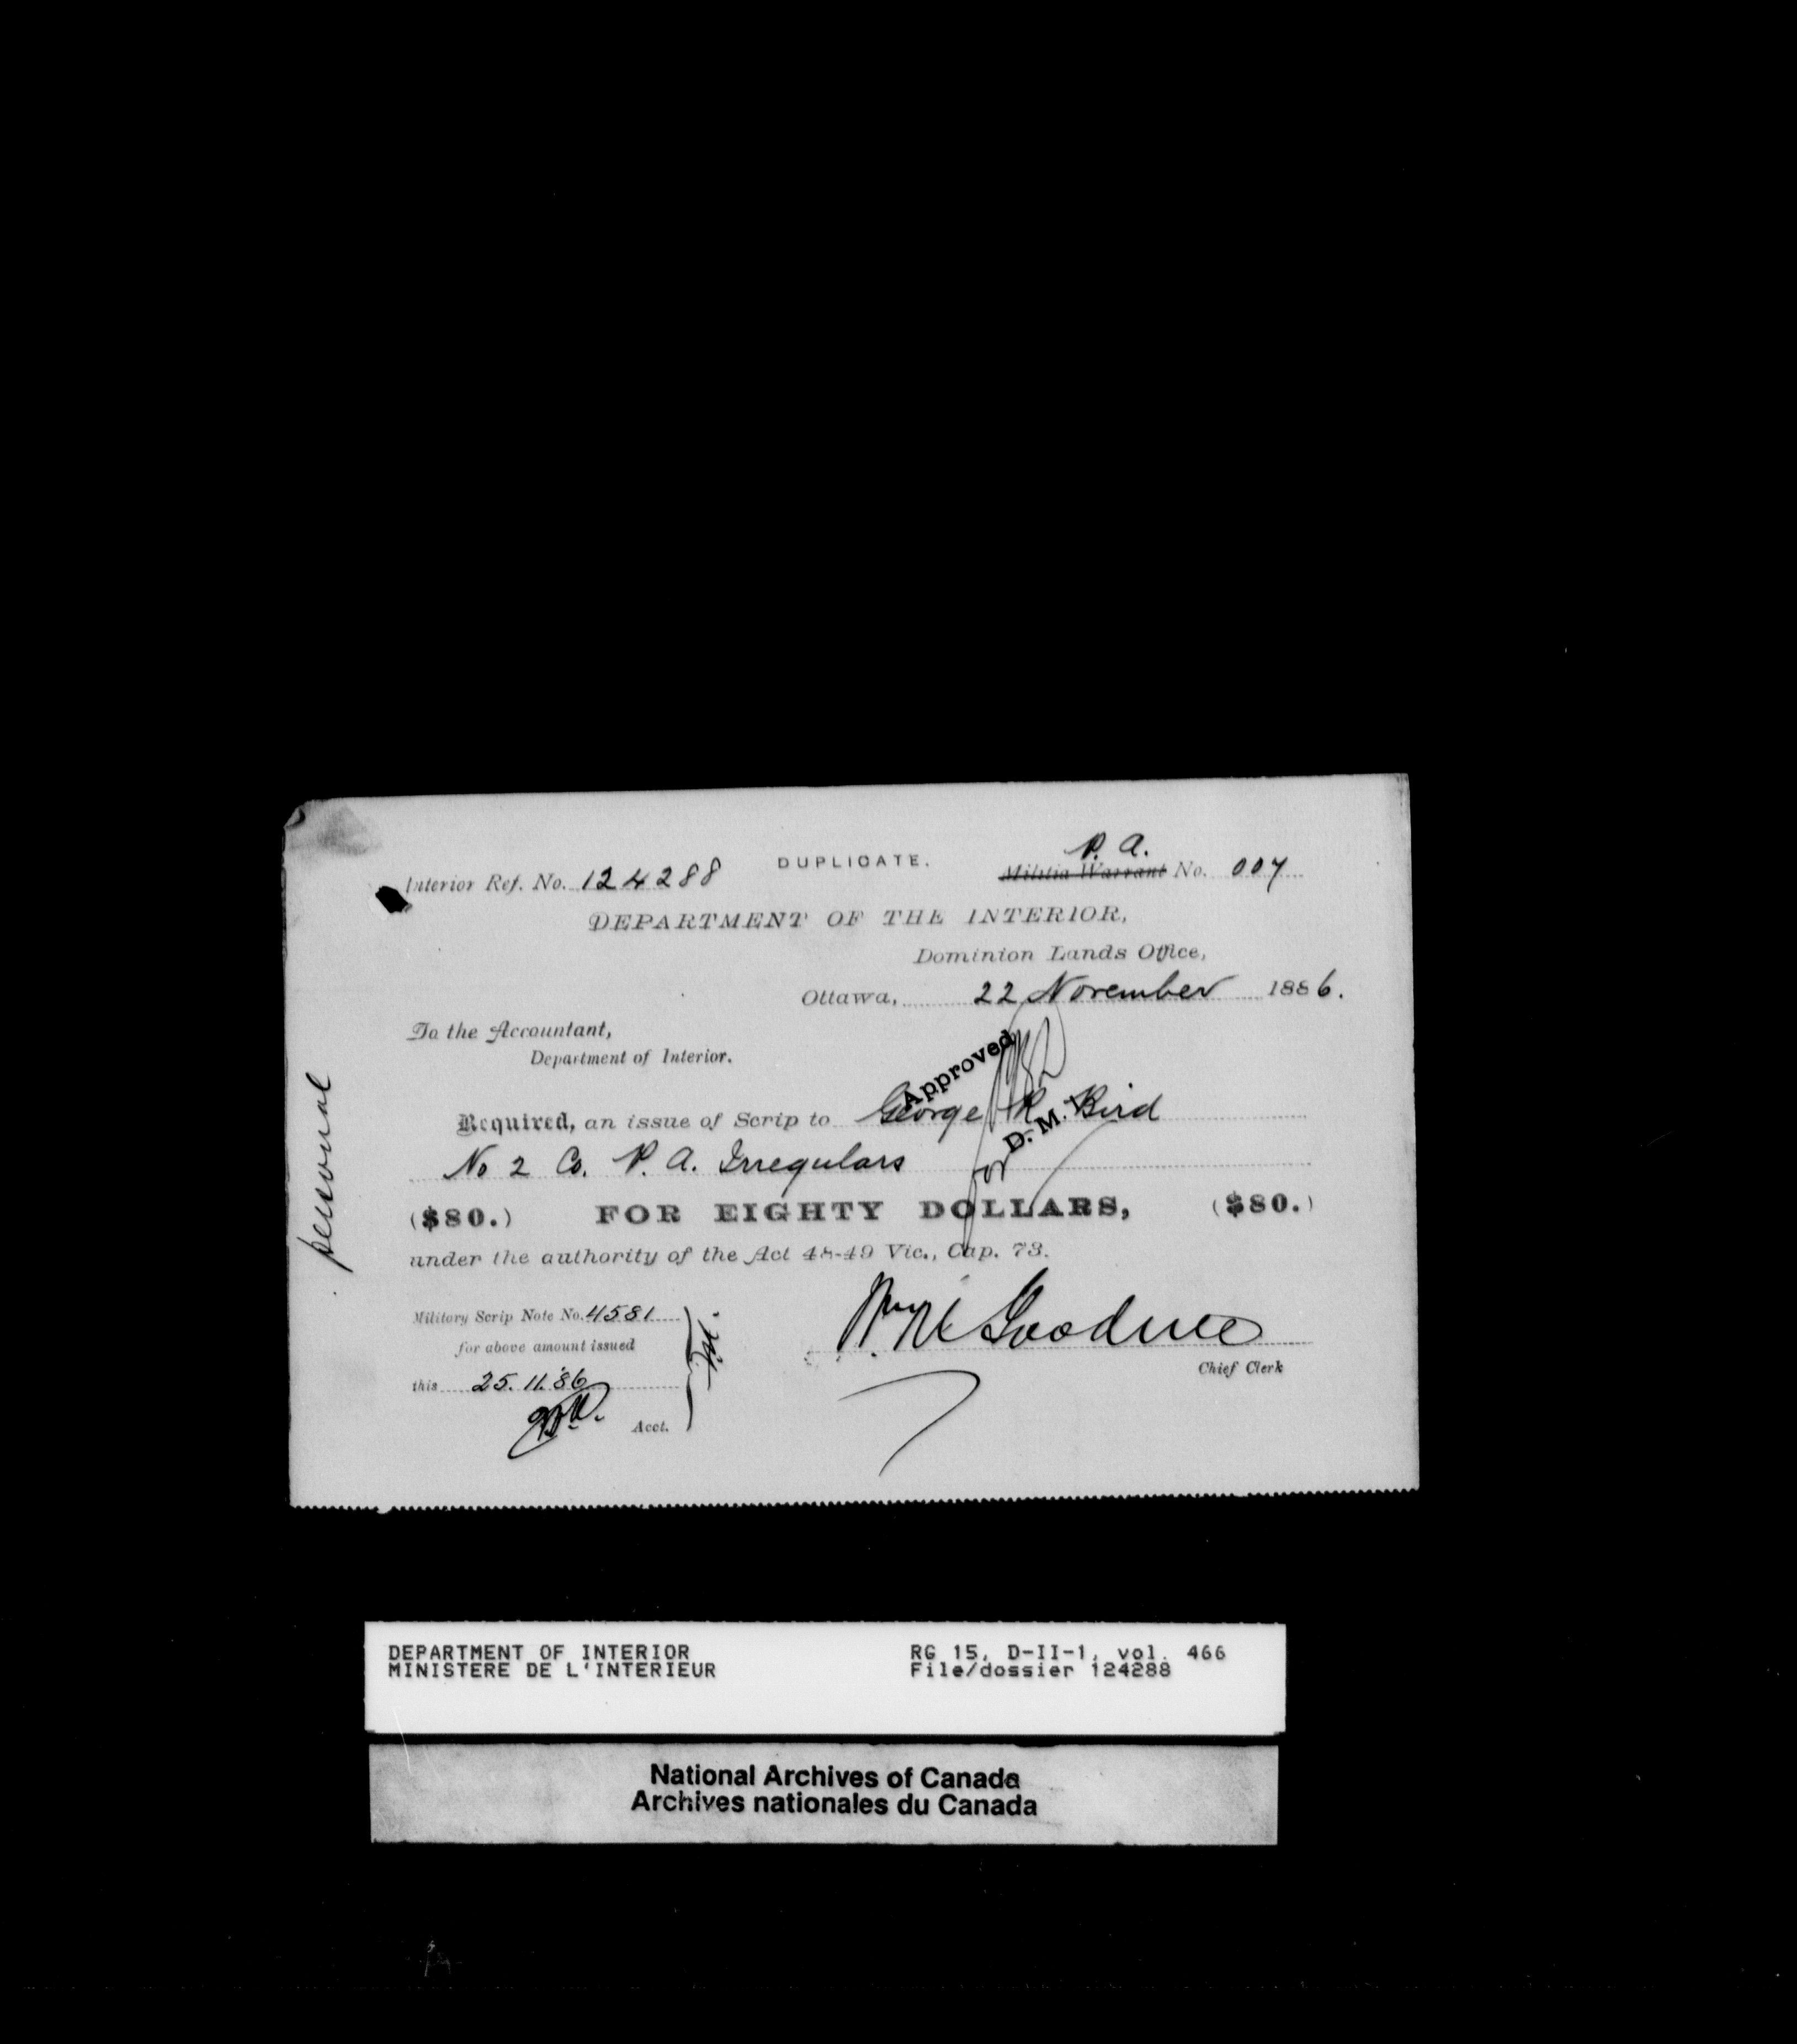 DUPLICATE.
P. A.
Interior Ref. No. 124288
Militia Warrant No. 007
DEPARTMENT OF THE INTERIOR,
Dominion Lands Office,
Ottawa, 22 November 1886.
To the Accountant,
Department of Interior.
Approved
Required, an issue of Scrip to George R Bird
D. M. I.
No 2 Co. P. A. Irregulars
for
($80.) FOR EIGHTY DOLLARS, ($80.)
under the authority of the Act 48-49 Vic., Cap. 73.
personal
Military Scrip Note No. 4581
for above amount issued
this 25. 11. '86
Acct.
Chief Clerk
DEPARTMENT OF INTERIOR
MINISTERE DE L'INTERIEUR
RG 15, D-II-1, vol. 466
File/dossier 124288
National Archives of Canada
Archives nationales du Canada